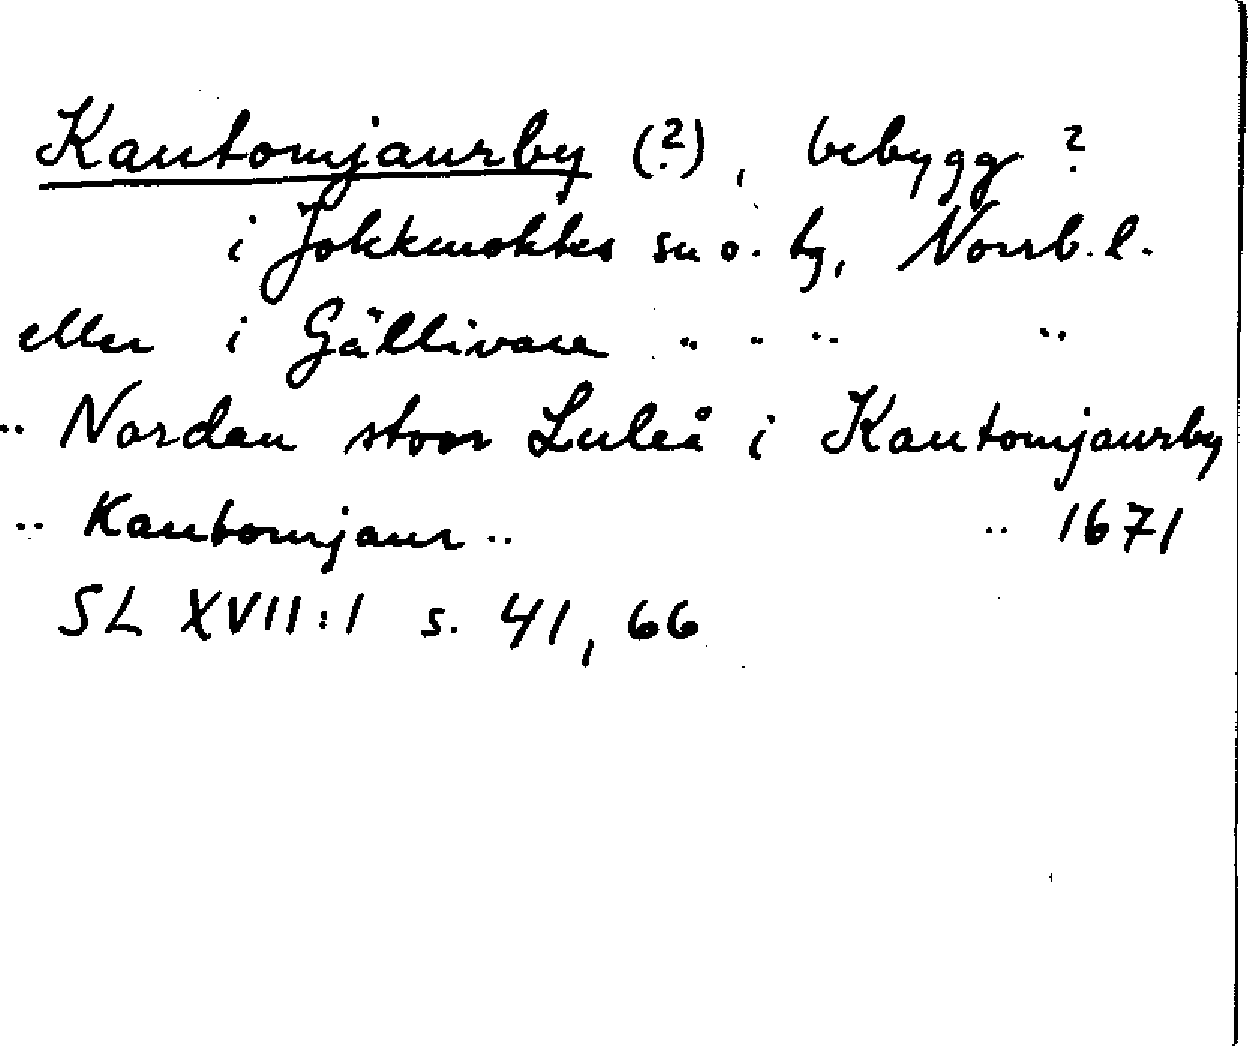 Kautomjaurby (?), bebygg?
i Jokkmokks sn o. tg, Norrb. l.
eller i Gällivare " " " "
" Norden stoor Luleå i Kautomjaurby
" Kautomjaur " " 1671
SL XVII:1 s. 41, 66